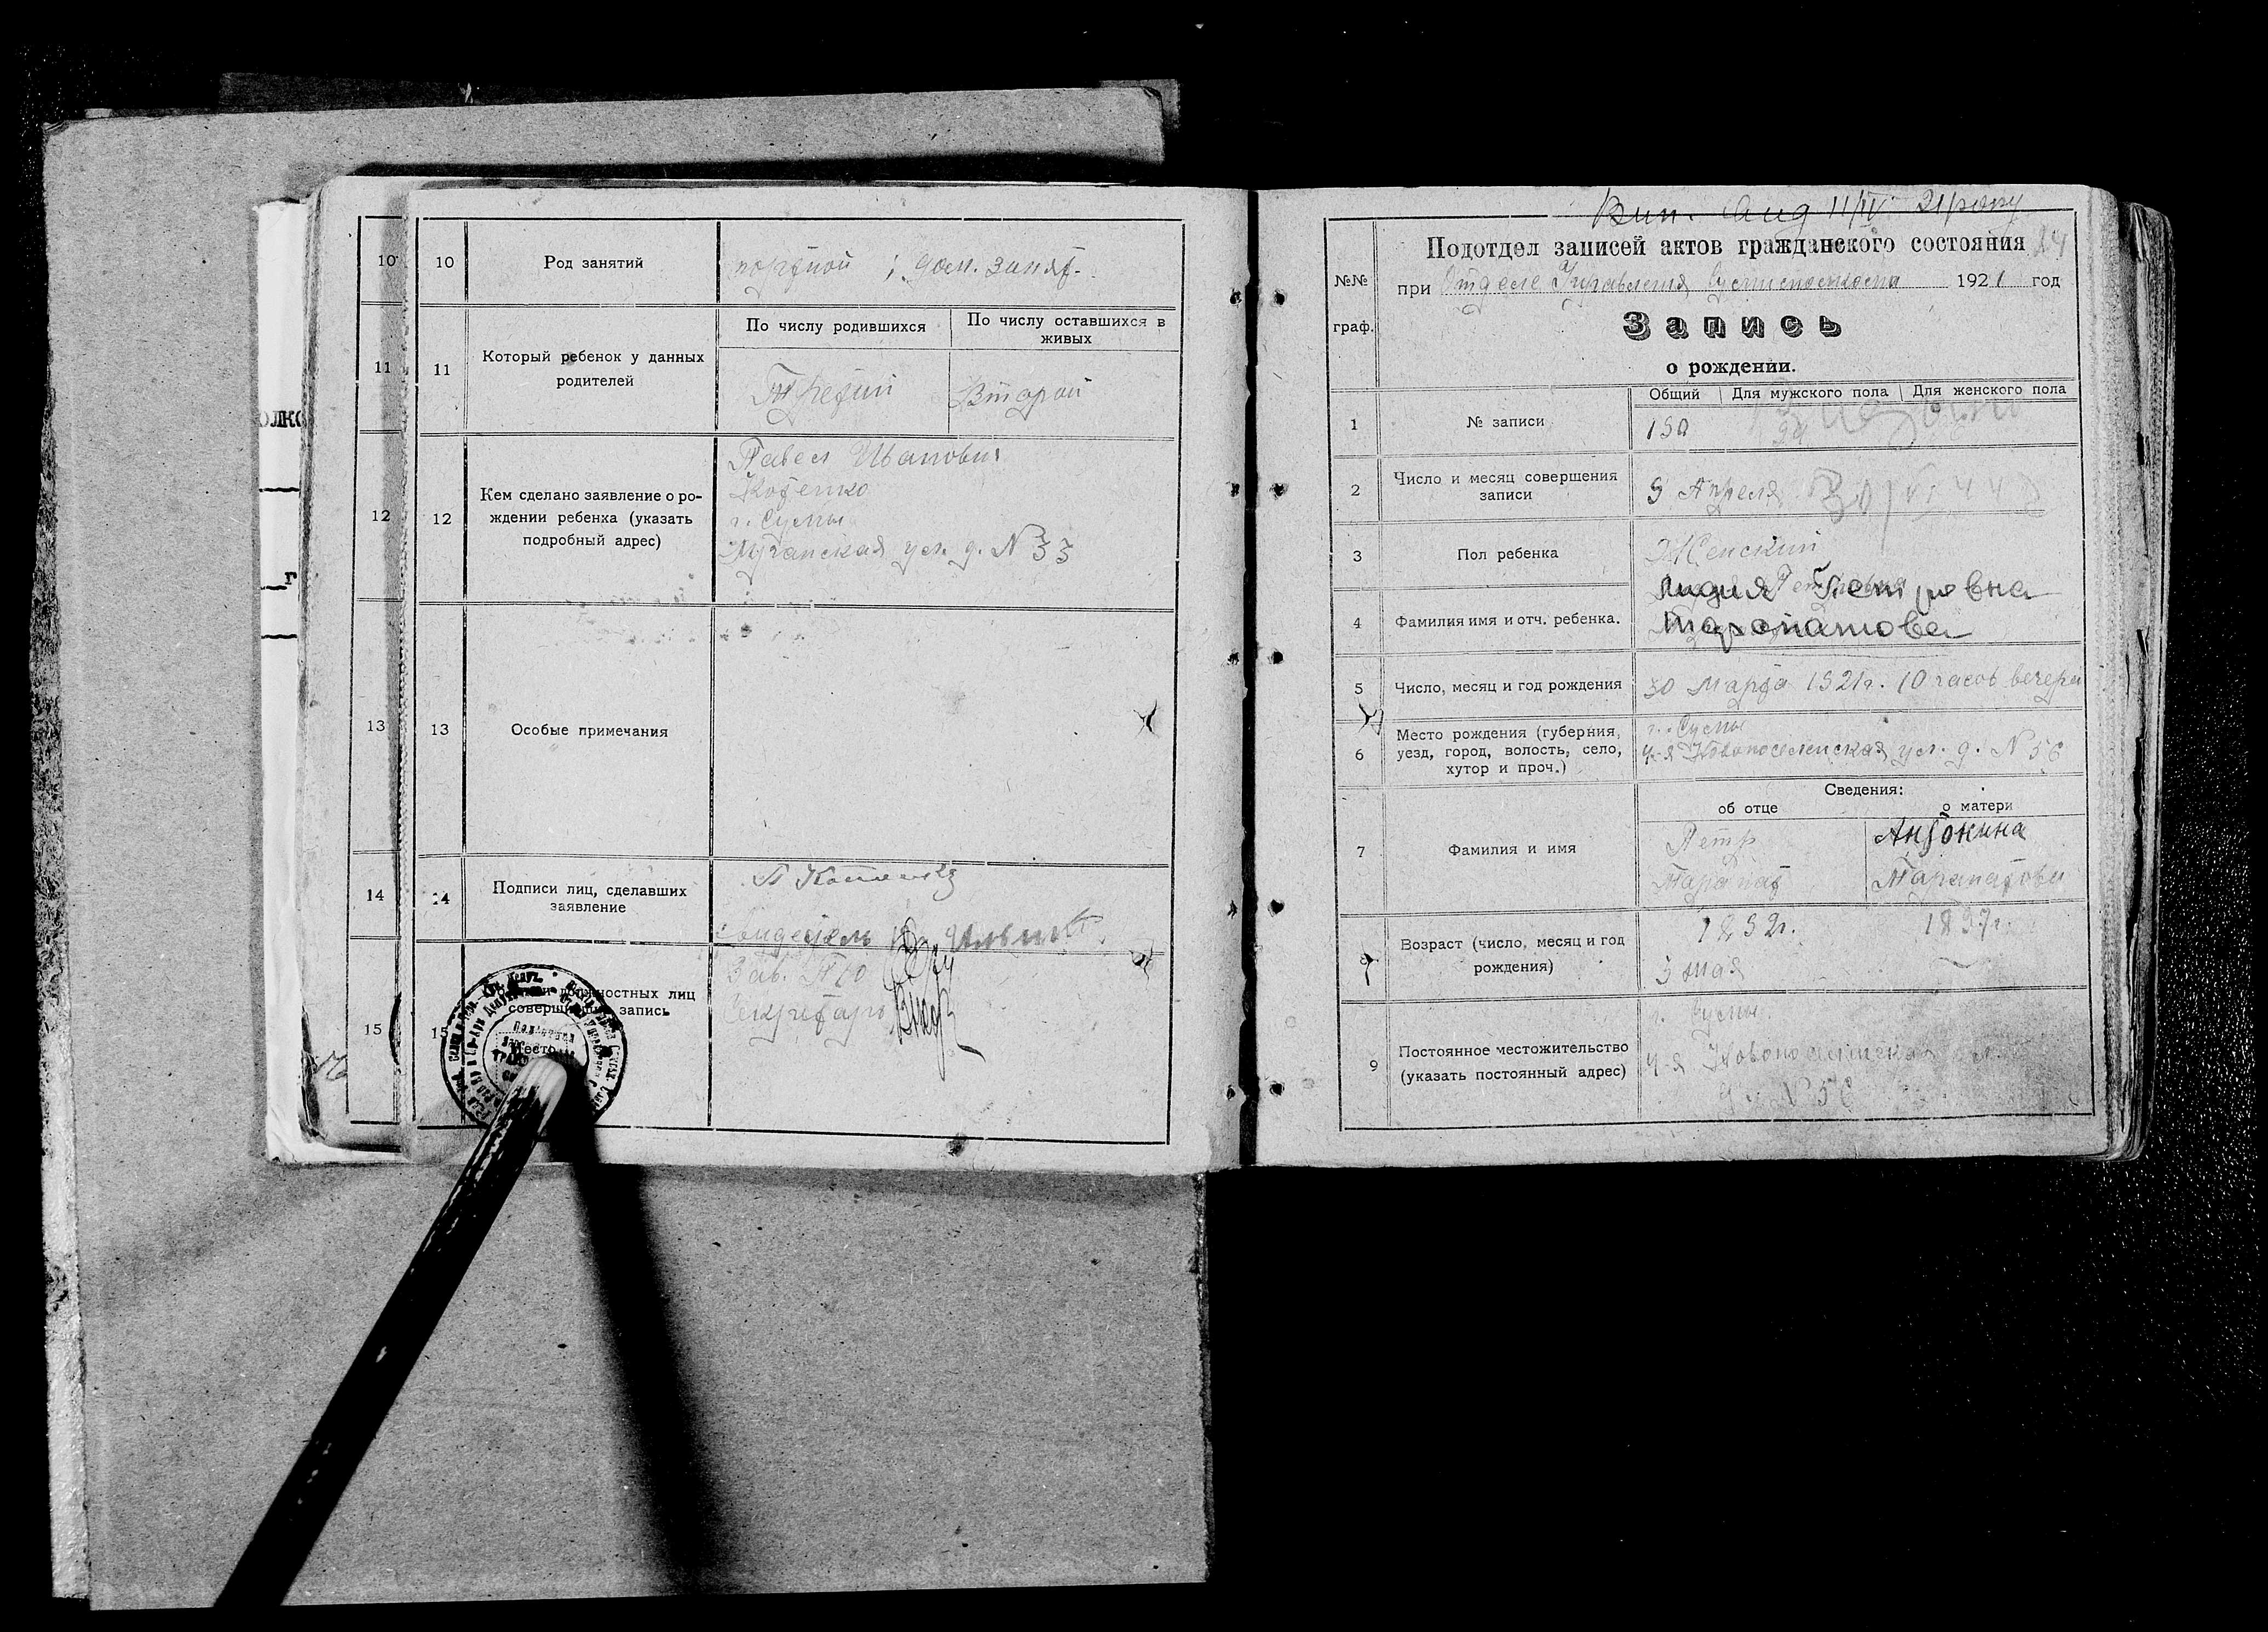 10
10
Род занятий
портной ; дом. занят.
11
11
Который ребенок у данных
родителей
По числу родившихся
По числу оставшихся в
живых
Третий
Второй
12
12
Кем сделано заявление о ро-
ждении ребенка (указать
подробный адрес)
Павел Иванович
Котенко
г. Сумы
ул. д. N 33
13
13
Особые примечания
14
14
Подписи лиц, сделавших
заявление
15
15
должностных лиц
запись
Место
Секретарь
11/IV 21 року
Подотдел записей актов гражданского состояния
№№
граф.
при Отделе Управления 1921 год
Запись
о рождении.
1
№ записи
Общий
Для мужского пола
Для женского пола
2
Число и месяц совершения
записи
9 Апреля
3
Пол ребенка
Женский
4
Фамилия имя и отч. ребенка.
Лидия Петровна
Тарапатова
5
Число, месяц и год рождения
30 Марта 1921г. 10 часов вечера
6
Место рождения (губерния,
уезд, город, волость, село,
хутор и проч.)
г. Сумы
4-я Новопоселенская ул. д. N 56
Сведения:
об отце
о матери
7
Фамилия и имя
Петр
Тарапат
Тарапатова
Возраст (число, месяц и год
рождения)
1892г.
3 мая
1897г.
9
Постоянное местожительство
(указать постоянный адрес)
г. Сумы
4-я Новопоселенская
д. N 56